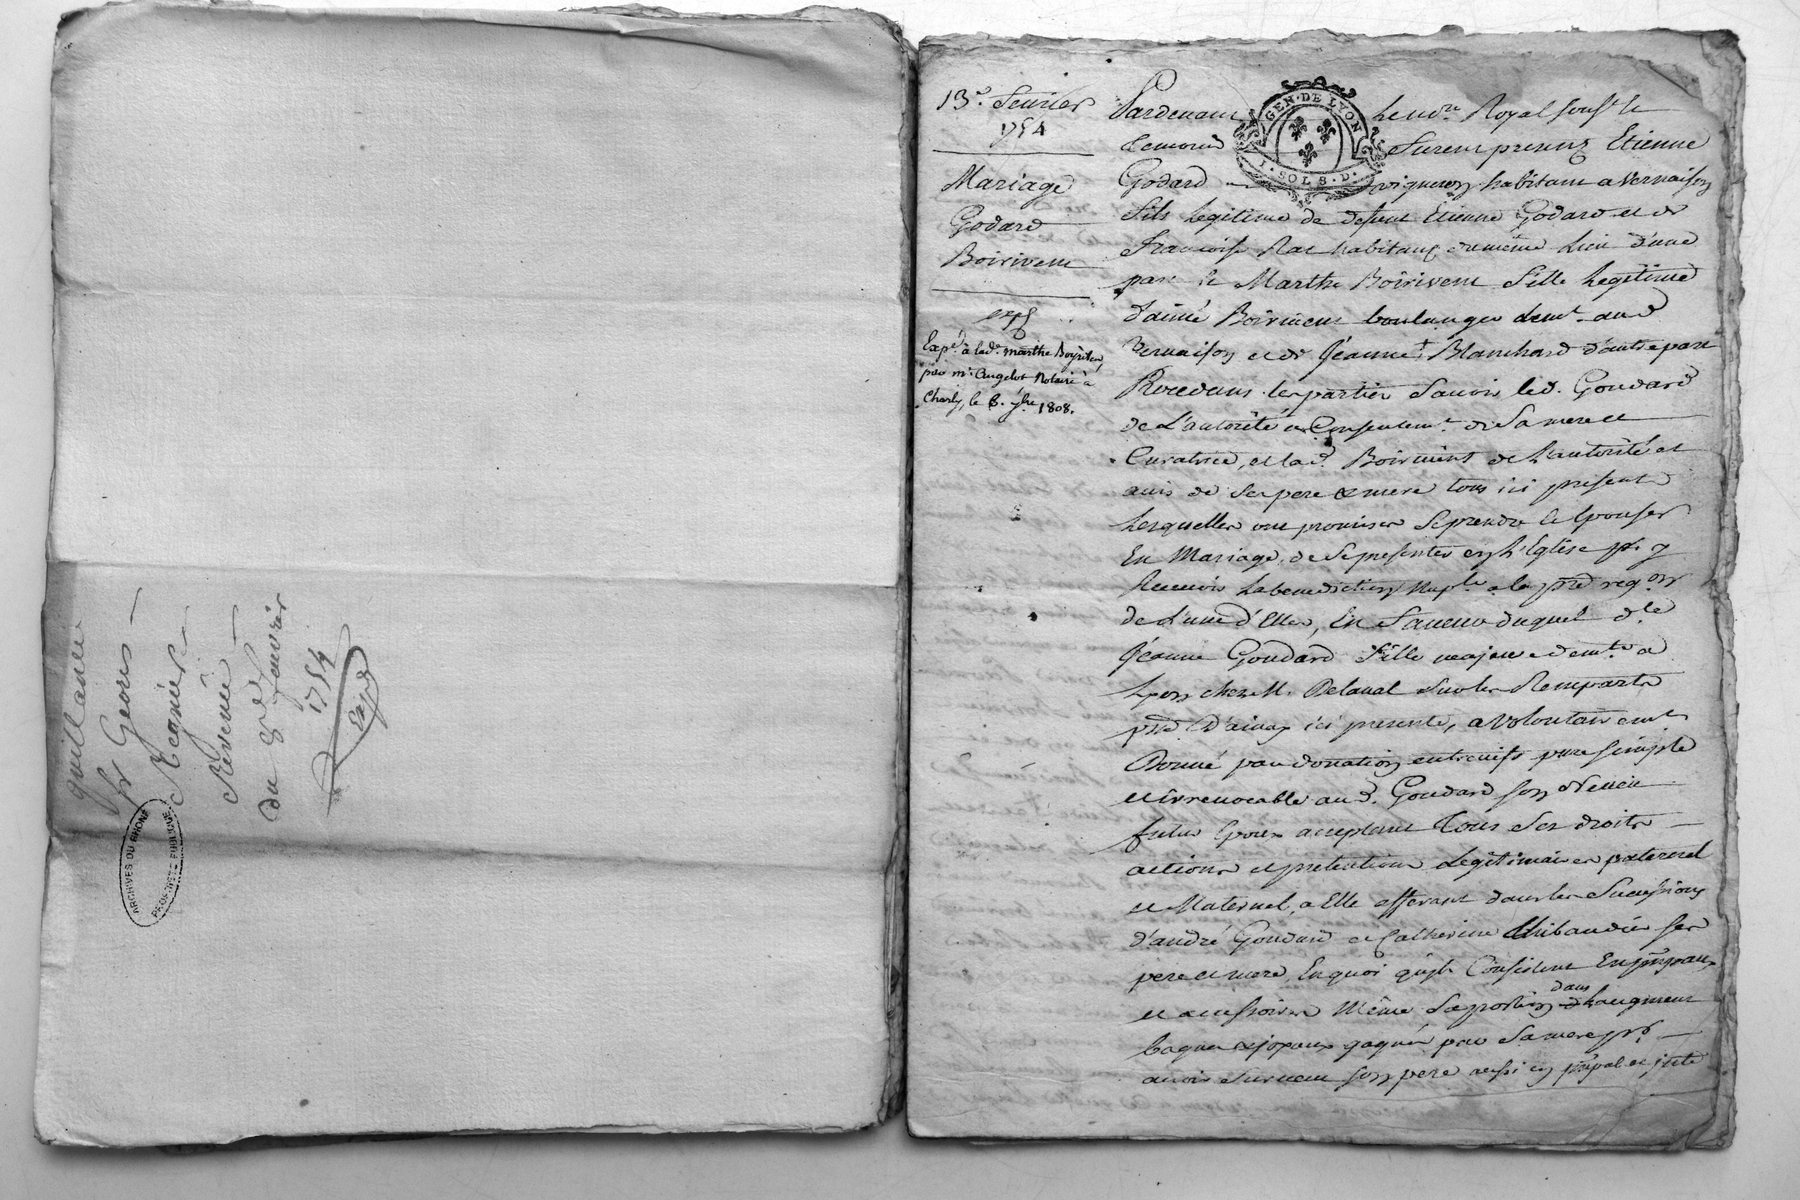 quittance
Sr Geores
Regnier
Revenüe
du 8e. fevrier
1754
Exp.
ARCHIVES DU RHÔNE
PROPRIÉTÉ PUBLIQUE
13e. fevrier
1754
Mariage
Godard
Boiriveni
exp.
Expé. à lad. marthe Boyriven
par me. Angelot Notaire à
Charly, le 8. 9bre 1808.
GEN. DE LYON
1. SOLS. D.
Pardevant le no.re Royal souss.é
temoins furent presents Etienne
Godard vigneron habitant a Vernaison
fils legitime de defunt Etienne Godard et de
francoise habitants du meme lieu d'une
part et Marthe Boirivent fille legitime
d'aimé Boirivent boulanger dem.t aud.
Vernaison et de Jeanne Blanchard d'autre part
Procedans les parties Savoir led. Goudard
de L'autorité et Consentem.t de Sa mere et
Curatrice, et lad. Boirivent de L'autorité et
avis de Ses pere et mere tous ici presents
Lesquelles ont promis Se prendre et Epouser
En Mariage, de Se presenter en L'Eglise pr. y
Recevoir La benediction Nup.le a la p.re req.on
de L'une d'Elles, En faveur duquel d.lle
Jeanne Goudard fille majeure dem.te a
Lyon chez M. Delaval Sur les Remparts
d'ainay ici presente, a Volontairem.t
Donné par donation entrevifs pure simple
et irrevocable aud. Goudard son Neveu
futur Epoux acceptant Tous Ses droits
actions et pretentions Legitimaires paternel
et Maternel, a Elle afferant dans les Successions
d'andré Goudard et Catherine Thibaudier ses
pere et mere, En quoi qu'ils Consistent En p.rpaux
et accessoires Même Sa portion dans L'augment
bagues et joyaux gagnés par Sa mere pr.
avoir Survecu son pere aussi en p.rpal et